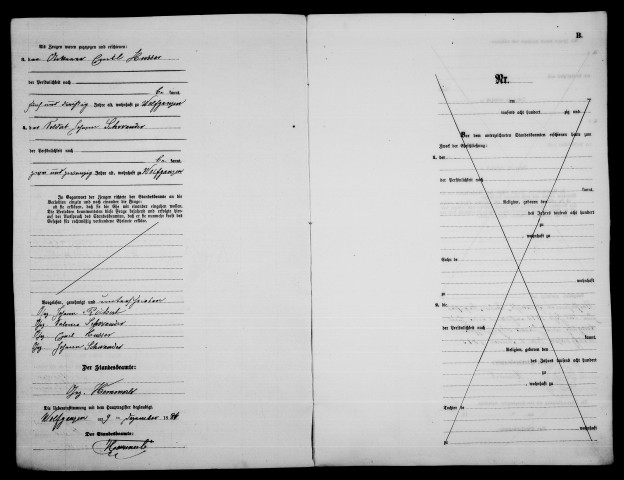 Als Zeugen waren zugezogen und erschienen:
3. der Emil Husser
der Persönlichkeit nach
be kannt,
fünf und dreißig Jahre alt, wohnhaft zu Wolfganzen
4. der Soldat Johann Schwander
der Persönlichkeit nach
be kannt,
zwei und zwanzig Jahre alt, wohnhaft zu Wolfganzen
In Gegenwart der Zeugen richtete der Standesbeamte an die
Verlobten einzeln und nach einander die Frage:
ob sie erklären, daß sie die Ehe mit einander eingehen wollen.
Die Verlobten beantworteten diese Frage bejahend und erfolgte hier-
auf der Ausspruch des Standesbeamten, daß er sie nunmehr kraft des
Gesetzes für rechtmäßig verbundene Eheleute erkläre.
Vorgelesen, genehmigt und unterschrieben
Gez. Johann
Gez. Schwander
Gez. Emil Husser
Gez. Johann Schwander
Der Standesbeamte:
Gez.
Die Uebereinstimmung mit dem Hauptregister beglaubigt.
Wolfganzen am 9 ten Dezember 18
Der Standesbeamte:
B.
Nr.
am
tausend acht hundert zig und
Vor dem unterzeichneten Standesbeamten erschienen heute zum
Zweck der Eheschließung:
1. der
der Persönlichkeit nach
kannt,
Religion, geboren den
des Jahres tausend acht hundert
zu
, wohnhaft zu
Sohn de
wohnhaft
zu
2. die
der Persönlichkeit nach
kannt,
Religion, geboren den
des Jahres tausend acht hundert
zu
, wohnhaft zu
Tochter de
wohnhaft
zu